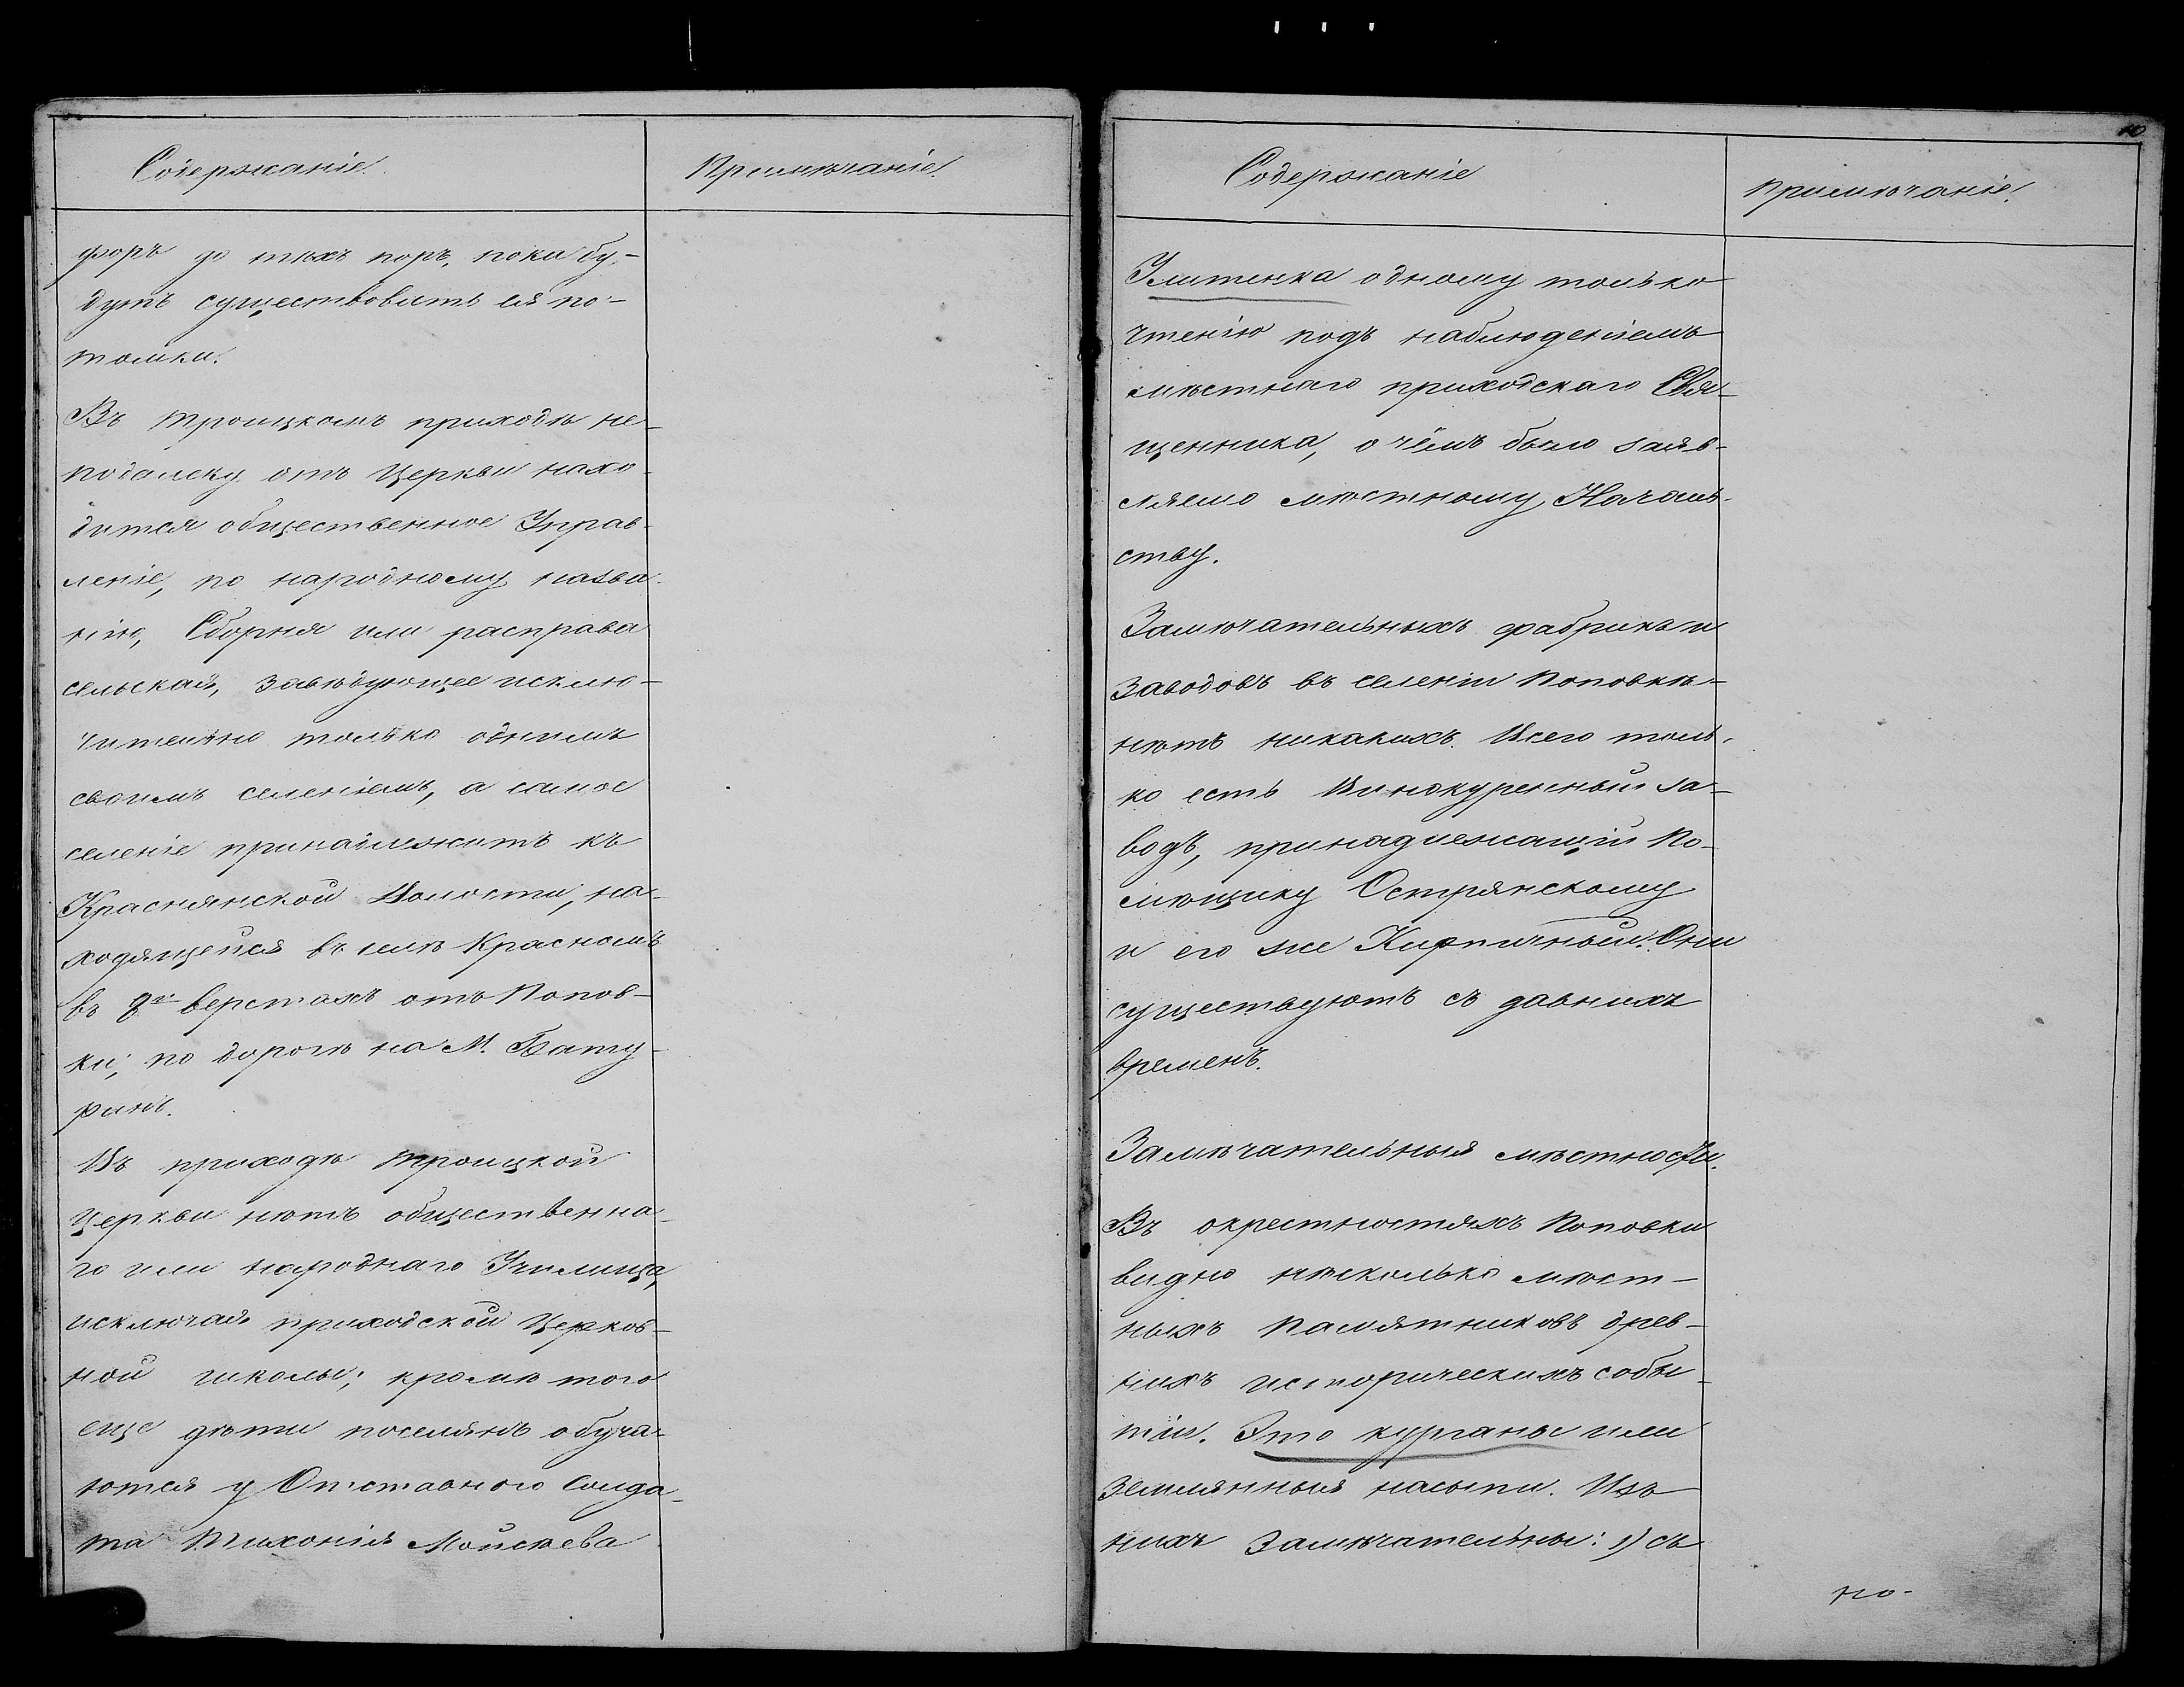 Содержаніе.
Примѣчаніе.
форъ до тѣхъ поръ, пока бу-
дутъ существовать ея по-
томки.
Въ Троицкомъ приходѣ не-
подалеку отъ Церкви нахо-
дится общественное Управ-
леніе, по народному назва-
нію, Сборня или расправа
сельская, завѣдующее исклю-
чительно только однимъ
своимъ селеніемъ, а самое
селеніе принадлежитъ къ
Краснянской Волости, на-
ходящейся въ селѣ Красномъ
въ верстахъ отъ Попов-
ки, по дорогѣ на М. Бату-
ринъ.
Въ приходѣ Троицкой
Церкви нѣтъ общественна-
го или народнаго Училища,
исключая приходской Церков-
ной школы; кромѣ того
еще дѣти поселянъ обуча-
ются у Отставного Солда-
та Тихонія Мойсѣева
10
Содержаніе
Примѣчаніе.
Улитенка одному только
чтенію подъ наблюденіемъ
мѣстнаго приходскаго Свя-
щенника, о чёмъ было заяв-
ляемо мѣстному Началь-
ству.
Замѣчательныхъ фабрикъ и
заводовъ въ селеніи Поповкѣ-
нѣтъ никакихъ. Всего толь-
ко есть Винокуренный за-
водъ, принадлежащій По-
мѣщику Острянскому
и его же Кирпичный. Они
существуютъ съ давнихъ
временъ.
Замѣчательныя мѣстности.
Въ окрестностяхъ Поповки
видно нѣсколько мѣст-
ныхъ Памятниковъ древ-
нихъ историческихъ собы-
тій. Это курганы или
земляныя насыпи. Изъ
нихъ Замѣчательны: 1) съ
но-